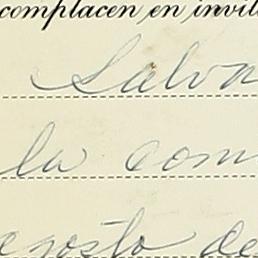 complacen en invit
Salva
la com
agosto de